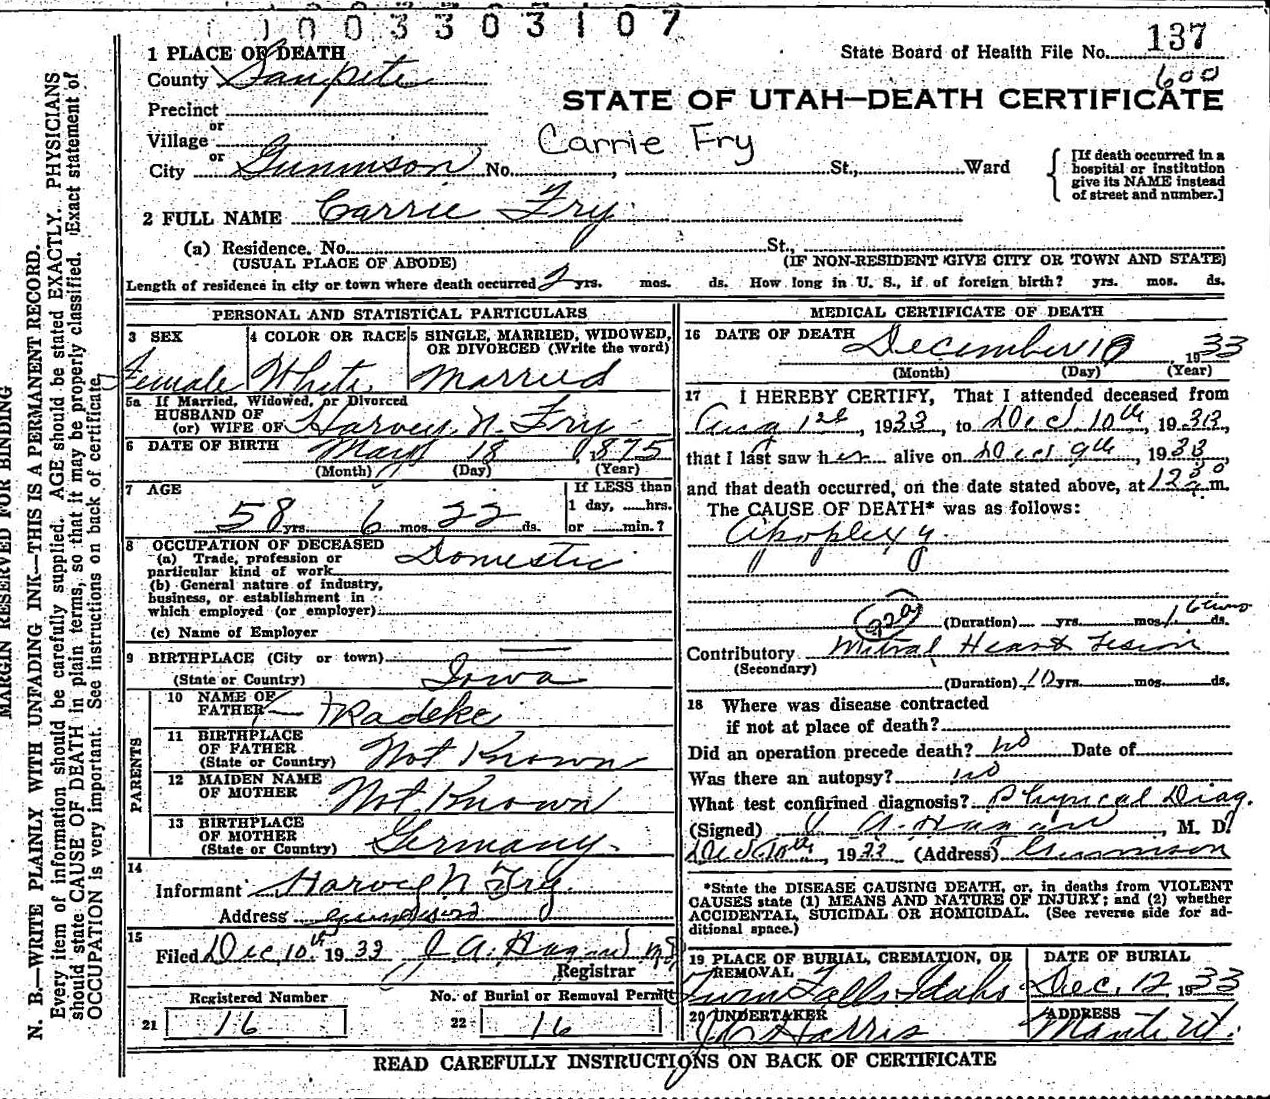 1003303107
State Board of Health File No. 137
600
1 PLACE OF DEATH
County Sanpete
STATE OF UTAH—DEATH CERTIFICATE
Precinct
or
Village
Carrie Fry
or
City Gunnison No. , St., Ward
[If death occurred in a
hospital or institution
give its NAME instead
of street and number.]
2 FULL NAME Carrie Fry
(a) Residence. No. St.,
(USUAL PLACE OF ABODE) (IF NON-RESIDENT GIVE CITY OR TOWN AND STATE)
Length of residence in city or town where death occurred 2 yrs. mos. ds. How long in U. S., if of foreign birth? yrs. mos. ds.
PERSONAL AND STATISTICAL PARTICULARS
3 SEX 4 COLOR OR RACE 5 SINGLE, MARRIED, WIDOWED,
OR DIVORCED (Write the word)
Female White Married
5a If Married, Widowed, or Divorced
HUSBAND OF
(or) WIFE OF Harvey N. Fry
6 DATE OF BIRTH May 18, 1875
(Month) (Day) (Year)
7 AGE If LESS than
1 day, hrs.
58 yrs. 6 mos. 22 ds. or min.?
8 OCCUPATION OF DECEASED
(a) Trade, profession or
particular kind of work Domestic
(b) General nature of industry,
business, or establishment in
which employed (or employer)
(c) Name of Employer
9 BIRTHPLACE (City or town)
(State or Country) Iowa
PARENTS
10 NAME OF
FATHER Radeke
11 BIRTHPLACE
OF FATHER
(State or Country) Not Known
12 MAIDEN NAME
OF MOTHER Not Known
13 BIRTHPLACE
OF MOTHER
(State or Country) Germany.
14
Informant Harvey N. Fry
Address Gunnison
15
Filed Dec 10th 1933 J A. Hagan M D
Registrar
Registered Number No. of Burial or Removal Permit
21 16 22 16
MEDICAL CERTIFICATE OF DEATH
16 DATE OF DEATH December 10, 1933
(Month) (Day) (Year)
17 I HEREBY CERTIFY, That I attended deceased from
Aug 1st, 1933, to Dec 10th, 1933,
that I last saw her alive on Dec 9th, 1933,
and that death occurred, on the date stated above, at 12 30 m.
The CAUSE OF DEATH* was as follows:
Apoplexy
82a (Duration) yrs. mos. ds.
Contributory Mitral Heart Lesion
(Secondary)
(Duration) 10 yrs. mos. ds.
18 Where was disease contracted
if not at place of death?
Did an operation precede death? no Date of
Was there an autopsy? no
What test confirmed diagnosis? Physical Diag.
(Signed) J A. Hagan, M. D.
Dec 10th, 1933 (Address) Gunnison
*State the DISEASE CAUSING DEATH, or, in deaths from VIOLENT
CAUSES state (1) MEANS AND NATURE OF INJURY; and (2) whether
ACCIDENTAL, SUICIDAL OR HOMICIDAL. (See reverse side for ad-
ditional space.)
19 PLACE OF BURIAL, CREMATION, OR
REMOVAL
Twin Falls Idaho
DATE OF BURIAL
Dec. 12 1933
20 UNDERTAKER
Harris
ADDRESS
Manti Ut.
READ CAREFULLY INSTRUCTIONS ON BACK OF CERTIFICATE
MARGIN RESERVED FOR BINDING
N. B.—WRITE PLAINLY WITH UNFADING INK—THIS IS A PERMANENT RECORD.
Every item of information should be carefully supplied. AGE should be stated EXACTLY. PHYSICIANS
should state CAUSE OF DEATH in plain terms, so that it may be properly classified. Exact statement of
OCCUPATION is very important. See instructions on back of certificate.